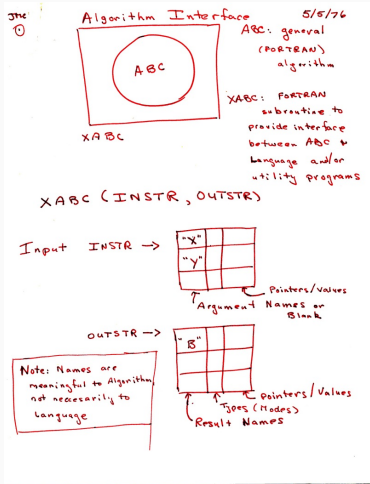 JMC Algorithm Interface 5/5/76
① ABC: general
(FORTRAN)
algorithm
ABC
XABC: FORTRAN
subroutine to
provide interface
between ABC &
Language and/or
utility programs
XABC
XABC (INSTR, OUTSTR)
Input INSTR →
"X"
"Y"
Pointers/Values
Argument Names or
Blank
OUTSTR →
"B"
Pointers/Values
Types (Modes)
Result Names
Note: Names are
meaningful to Algorithm,
not necessarily to
Language